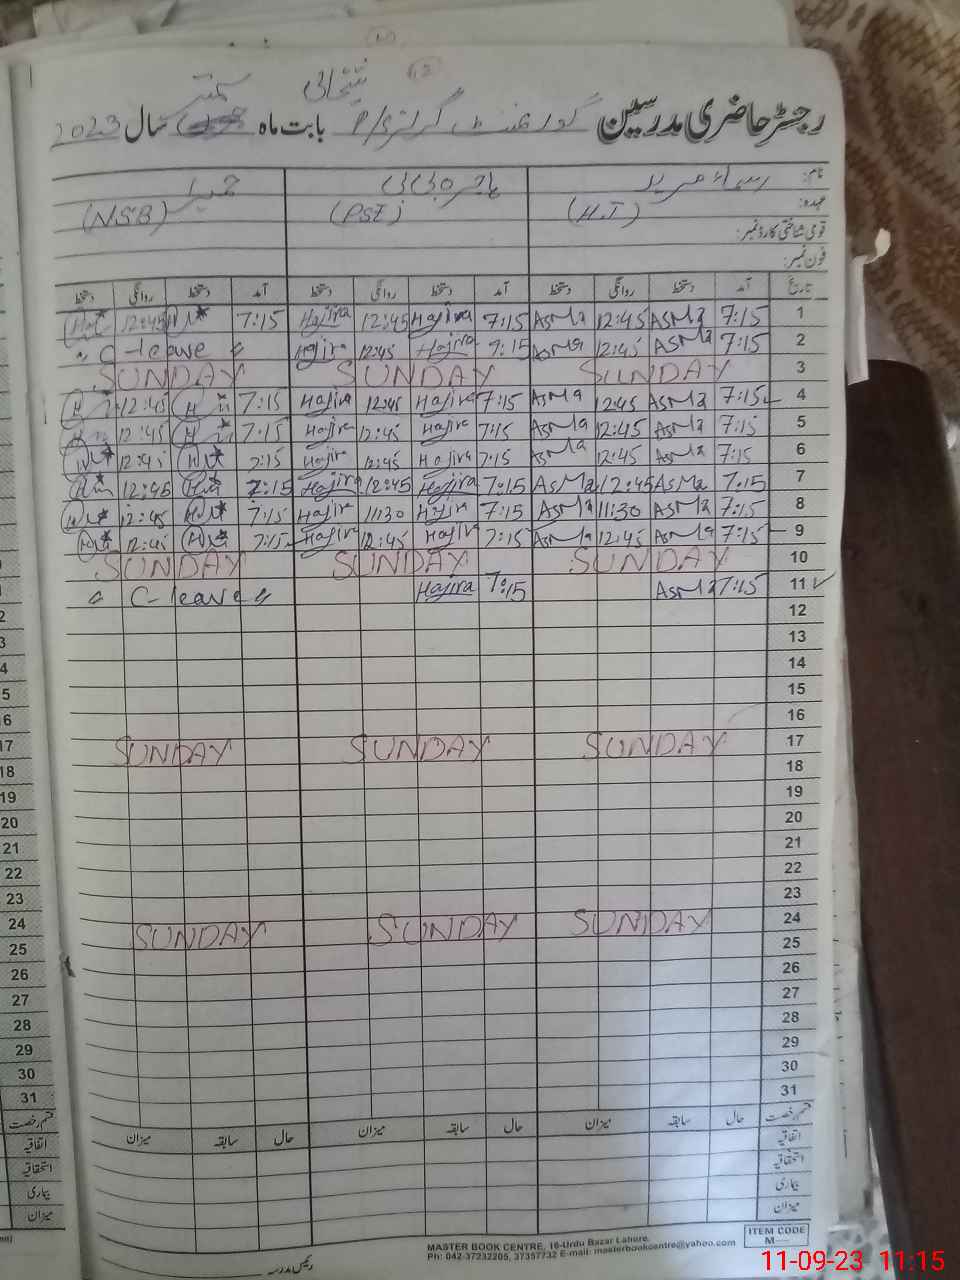 رجسٹر حاضری مدرسین گورنمنٹ گرلز P/ بابت ماہ ستمبر سال 2023
نام:
عہدہ: (H.T) (PST) (NSB)
قومی شناختی کارڈ نمبر:
فون نمبر:
تاریخ آمد دستخط روانگی دستخط آمد دستخط روانگی دستخط آمد دستخط روانگی دستخط
1 7:15 ASMa 12:45 ASMa 7:15 Hajira 12:45 Hajira 7:15 12:45
2 7:15 ASMa 12:45 ASMa 7:15 Hajira 12:45 Hajira " C-leave "
3 SUNDAY SUNDAY SUNDAY
4 7:15 ASMa 12:45 ASMa 7:15 Hajira 12:45 Hajira 7:15 12:45
5 7:15 ASMa 12:45 ASMa 7:15 Hajira 12:45 Hajira 7:15 12:45
6 7:15 ASMa 12:45 ASMa 7:15 Hajira 12:45 Hajira 7:15 12:45
7 7:15 ASMa 12:45 ASMa 7:15 Hajira 12:45 Hajira 7:15 12:45
8 7:15 ASMa 11:30 ASMa 7:15 Hajira 11:30 Hajira 7:15 12:45
9 7:15 ASMa 12:45 ASMa 7:15 Hajira 12:45 Hajira 7:15 12:45
10 SUNDAY SUNDAY SUNDAY
11 7:15 ASMa 7:15 Hajira " C-leave "
12
13
14
15
16
17 SUNDAY SUNDAY SUNDAY
18
19
20
21
22
23
24 SUNDAY SUNDAY SUNDAY
25
26
27
28
29
30
31
قسم رخصت حال سابقہ میزان حال سابقہ میزان حال سابقہ میزان
اتفاقیہ
استحقاقیہ
بیماری
میزان
رئیس مدرسہ
MASTER BOOK CENTRE, 16-Urdu Bazar Lahore.
Ph: 042-37232205, 37357732 E-mail: masterbookcentre@yahoo.com
ITEM CODE
M—
17
18
19
20
21
22
23
24
25
26
27
28
29
30
31
قسم رخصت
اتفاقیہ
استحقاقیہ
بیماری
میزان
11-09-23 11:15